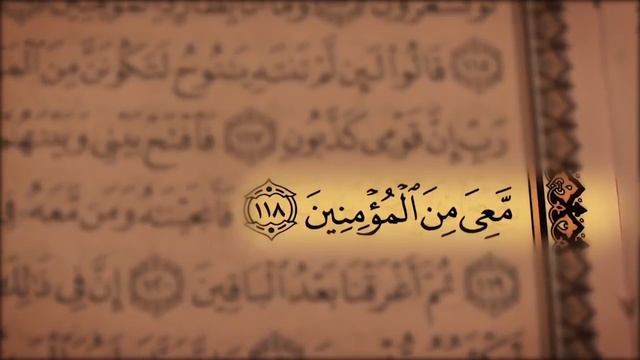 لَوْ تَشْعُرُونَ
۝١١٥ قَالُوا۟ لَئِن لَّمْ تَنتَهِ يَـٰنُوحُ لَتَكُونَنَّ مِنَ
رَبِّ إِنَّ قَوْمِى كَذَّبُونِ ۝١١٧ فَٱفْتَحْ بَيْنِى وَبَيْنَهُمْ
مَّعِىَ مِنَ ٱلْمُؤْمِنِينَ ۝١١٨ فَأَنجَيْنَـٰهُ وَمَن مَّعَهُۥ فِى
۝١١٩ ثُمَّ أَغْرَقْنَا بَعْدُ ٱلْبَاقِينَ ۝١٢٠ إِنَّ فِى ذَٰلِكَ